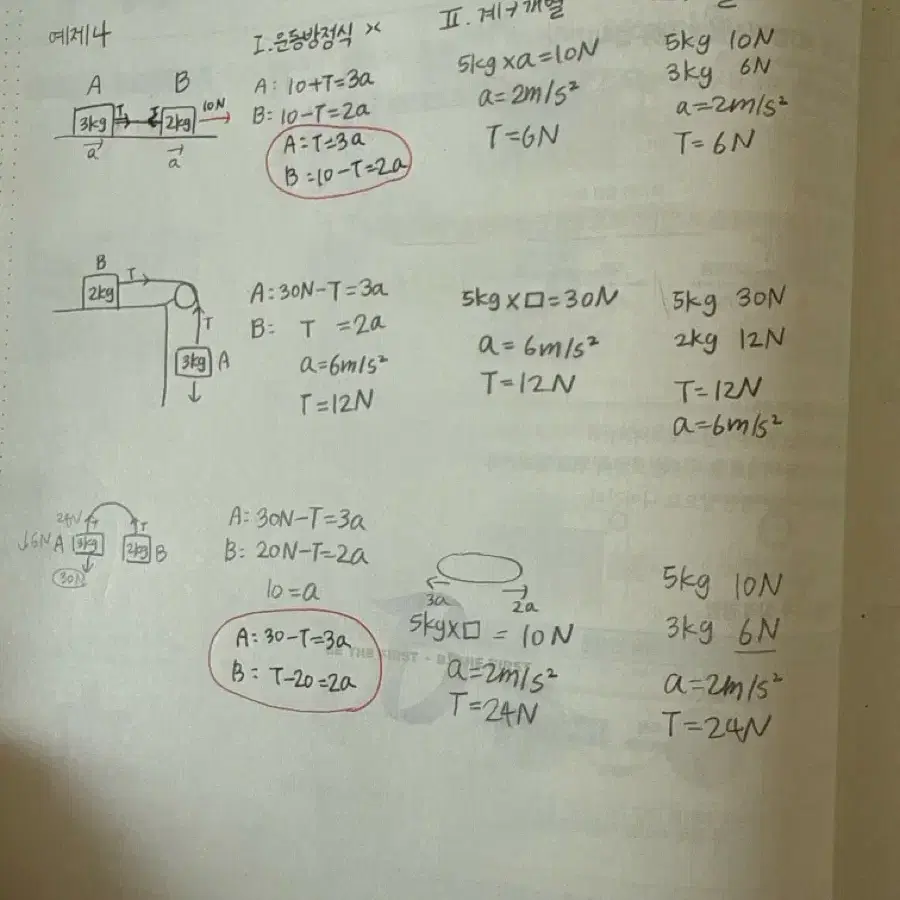 예제4
I. 운동방정식 ×
II. 계+개별
A B
3kg T T 2kg 10N
a a
A: 10+T=3a
B: 10-T=2a
A: T=3a
B: 10-T=2a
5kg×a=10N
a=2m/s²
T=6N
5kg 10N
3kg 6N
a=2m/s²
T=6N
B
2kg T
T
3kg A
A: 30N-T=3a
B: T =2a
a=6m/s²
T=12N
5kg×□=30N
a=6m/s²
T=12N
5kg 30N
2kg 12N
T=12N
a=6m/s²
24N T T
↓6N A 3kg 2kg B
30N
A: 30N-T=3a
B: 20N-T=2a
10=a
A: 30-T=3a
B: T-20=2a
3a 2a
5kg×□ = 10N
a=2m/s²
T=24N
5kg 10N
3kg 6N
a=2m/s²
T=24N